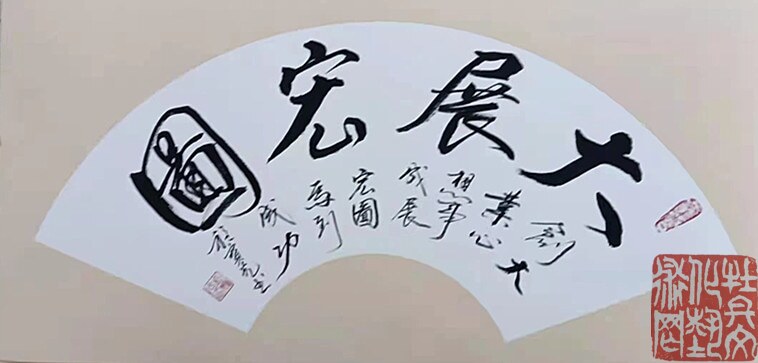 大展宏圖
創大
業心
想事
成展
宏圖
馬到
成功